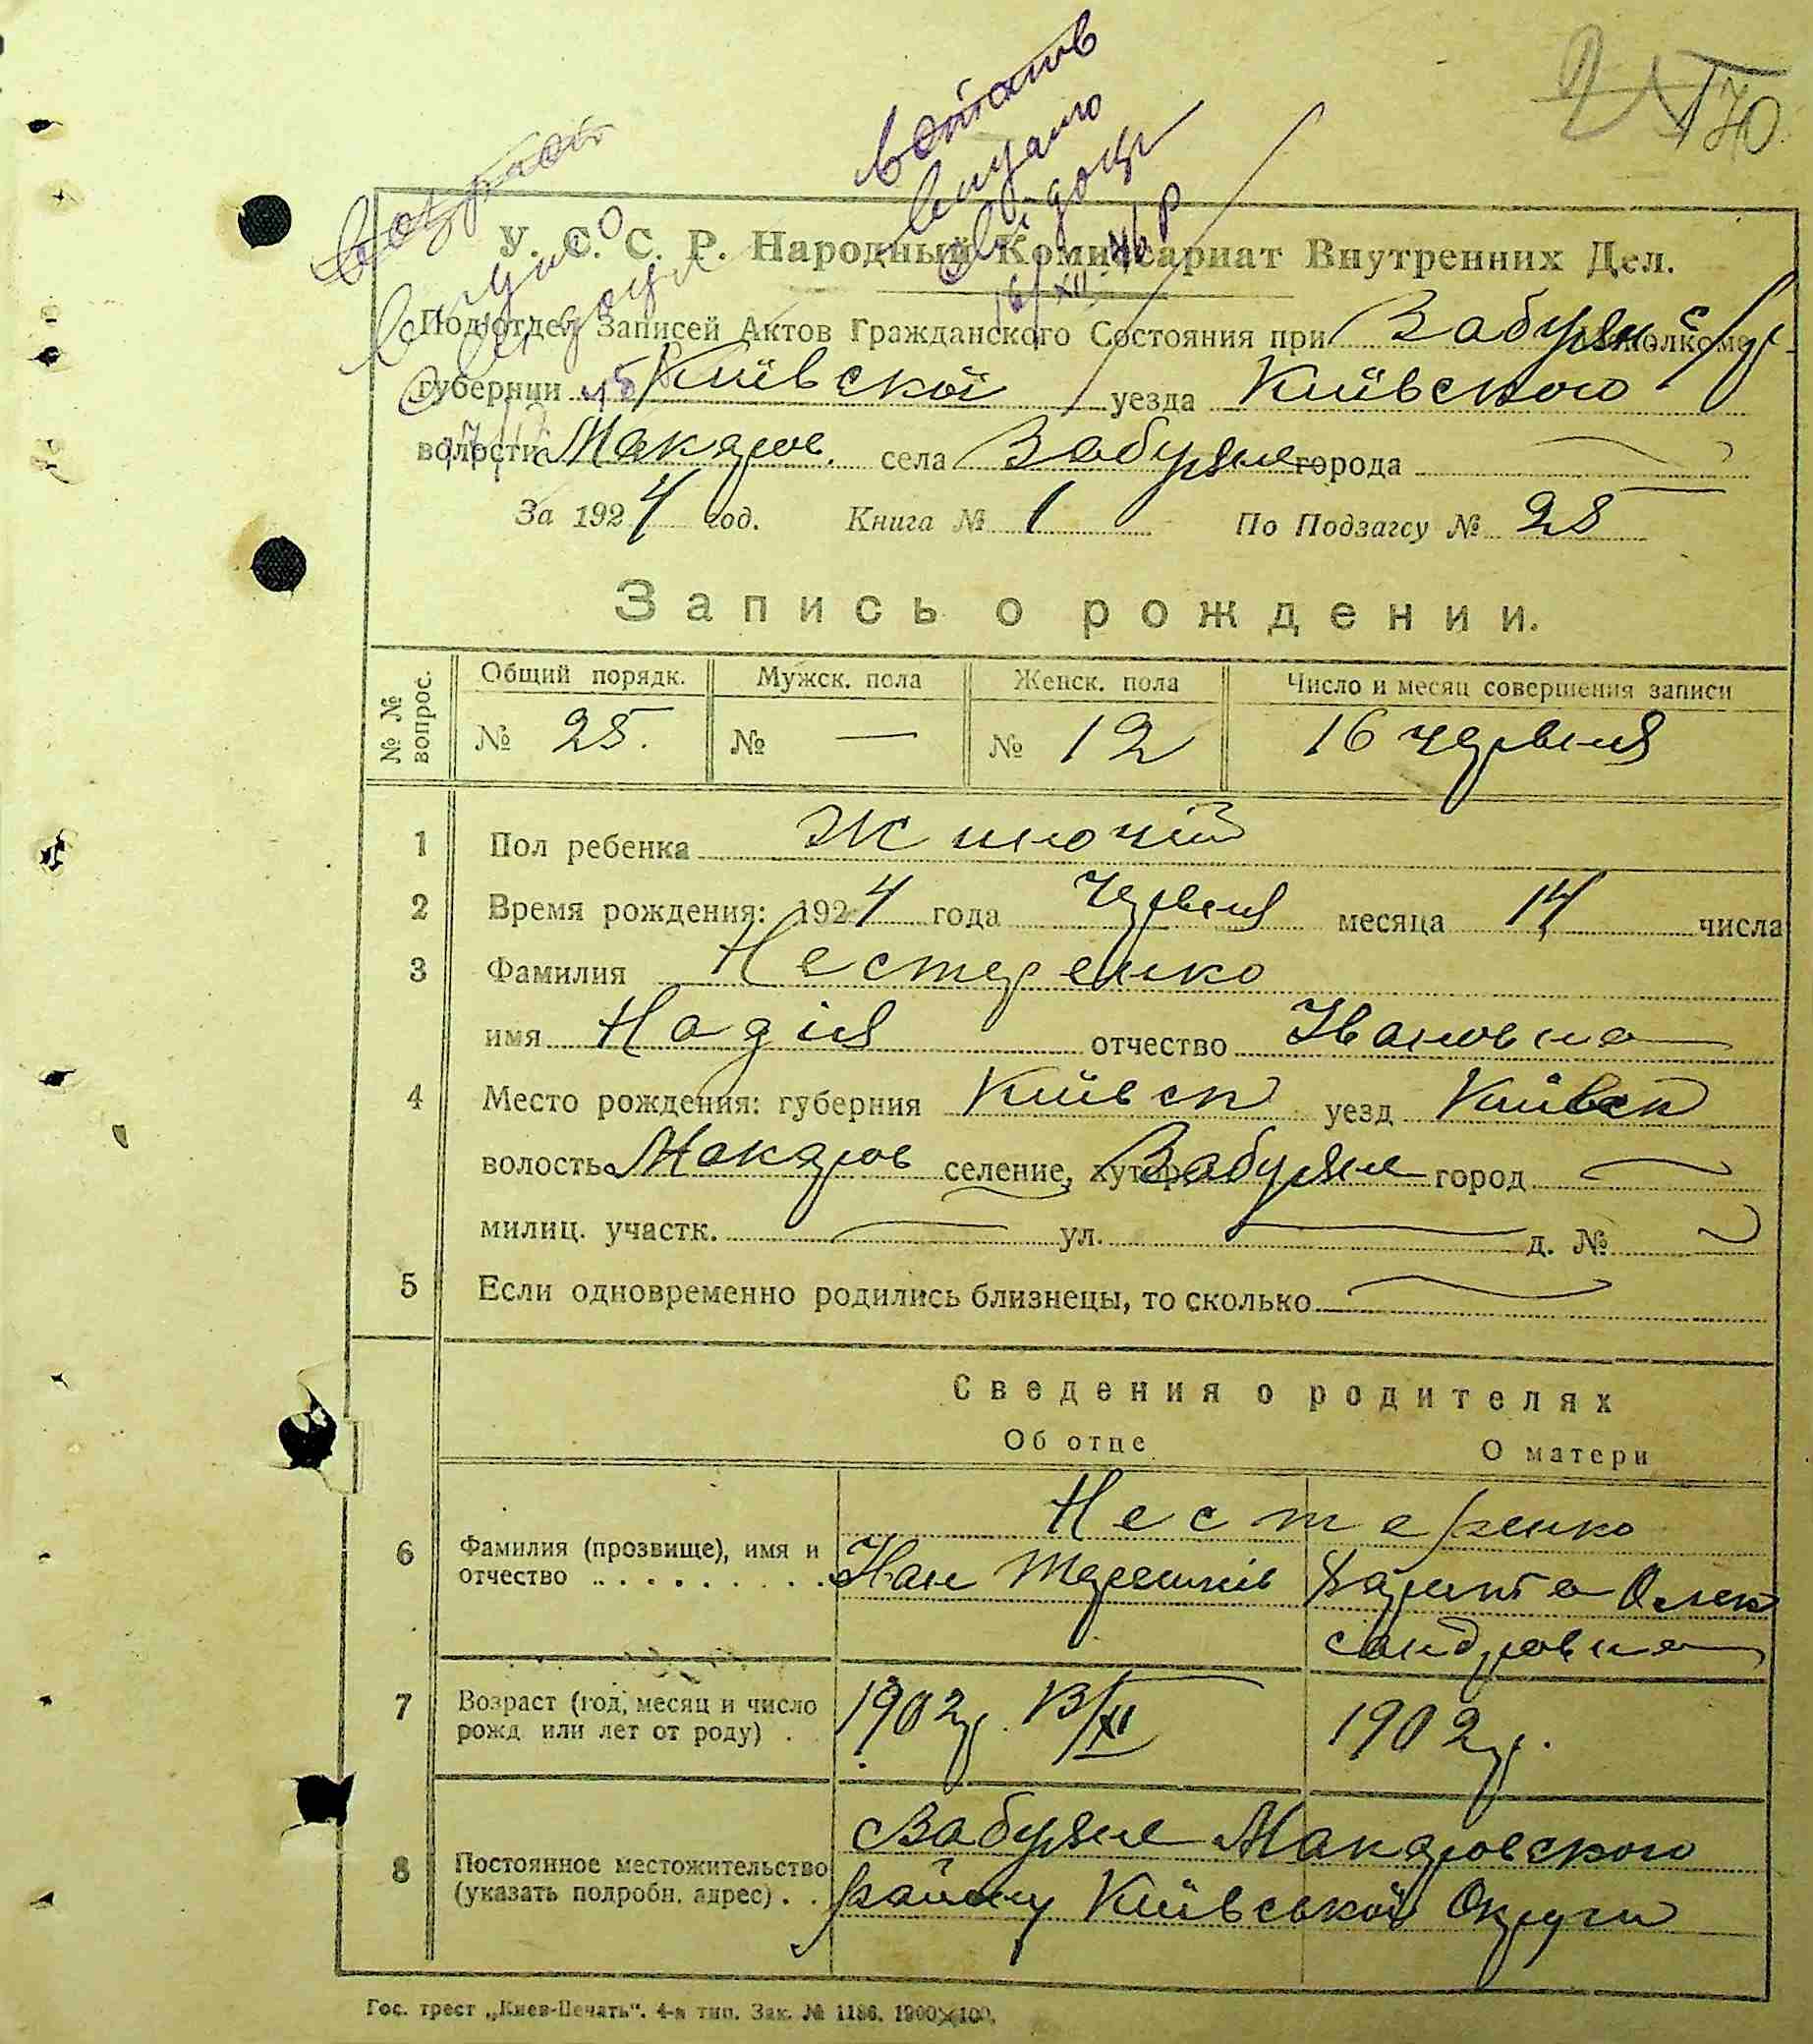 170
встанов
видано
свідоцт
16/XII 46 р
У. С. С. Р. Народный Комиссариат Внутренних Дел.
Подотдел Записей Актов Гражданского Состояния при Забуян с/р
губернии Київської уезда Київського
волости Макаров. села Забуяне города —
За 1924 год. Книга № 1 По Подзагсу № 25
Запись о рождении.
№ № вопрос. Общий порядк. Мужск. пола Женск. пола Число и месяц совершения записи
№ 25. № — № 12 16 червня
1 Пол ребенка Жиночий
2 Время рождения: 1924 года червня месяца 14 числа
3 Фамилия Нестеренко
имя Надія отчество Івановна
4 Место рождения: губерния Київск уезд Київск
волость Макаров селение, хутор Забуяне город —
милиц. участк. — ул. — д. №
5 Если одновременно родились близнецы, то сколько —
Сведения о родителях
Об отце О матери
Нестеренко
6 Фамилия (прозвище), имя и отчество Іван Терешків Олек
сандровна
7 Возраст (год, месяц и число рожд или лет от роду) 1902 р. 13/XII 1902 р.
Забуяне Макаровского
8 Постоянное местожительство (указать подробн. адрес) району Київської Округи
Гос. трест „Киев-Печать“. 4-я тип. Зак. № 1186. 1900×100.